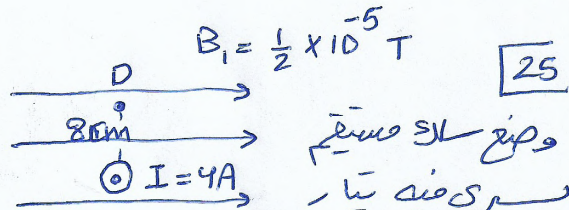 B₁ = ½ × 10⁻⁵ T
25
D
8cm
وضع سلك مستقيم
I = 4A
يسرى فيه تيار